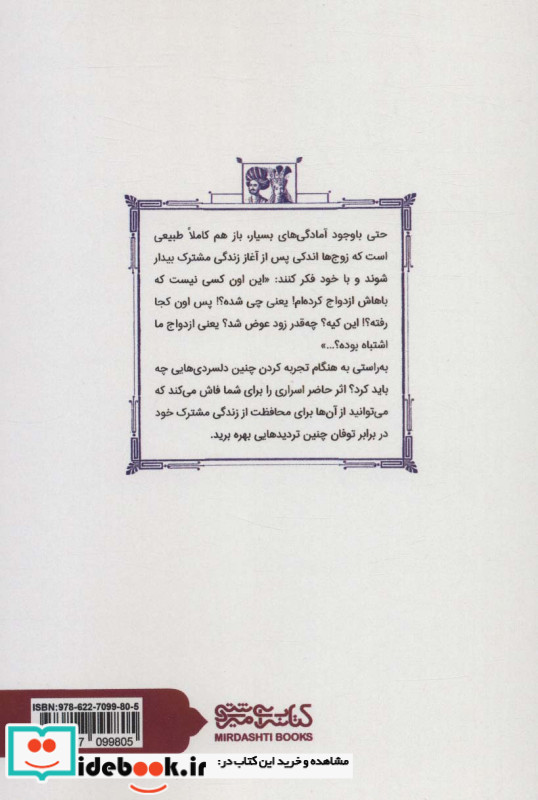 حتی باوجود آمادگی‌های بسیار، باز هم کاملاً طبیعی
است که زوج‌ها اندکی پس از آغاز زندگی مشترک بیدار
شوند و با خود فکر کنند: «این اون کسی نیست که
باهاش ازدواج کرده‌ام! یعنی چی شده؟! پس اون کجا
رفته؟! این کیه؟ چه‌قدر زود عوض شد؟ یعنی ازدواج ما
اشتباه بوده؟...»
به‌راستی به هنگام تجربه کردن چنین دلسردی‌هایی چه
باید کرد؟ اثر حاضر اسراری را برای شما فاش می‌کند که
می‌توانید از آن‌ها برای محافظت از زندگی مشترک خود
در برابر توفان چنین تردیدهایی بهره برید.
ISBN: 978-622-7099-80-5
7 099805
کتابسرای میردشتی
MIRDASHTI BOOKS
مشاهده و خرید این کتاب در:
idebook.ir